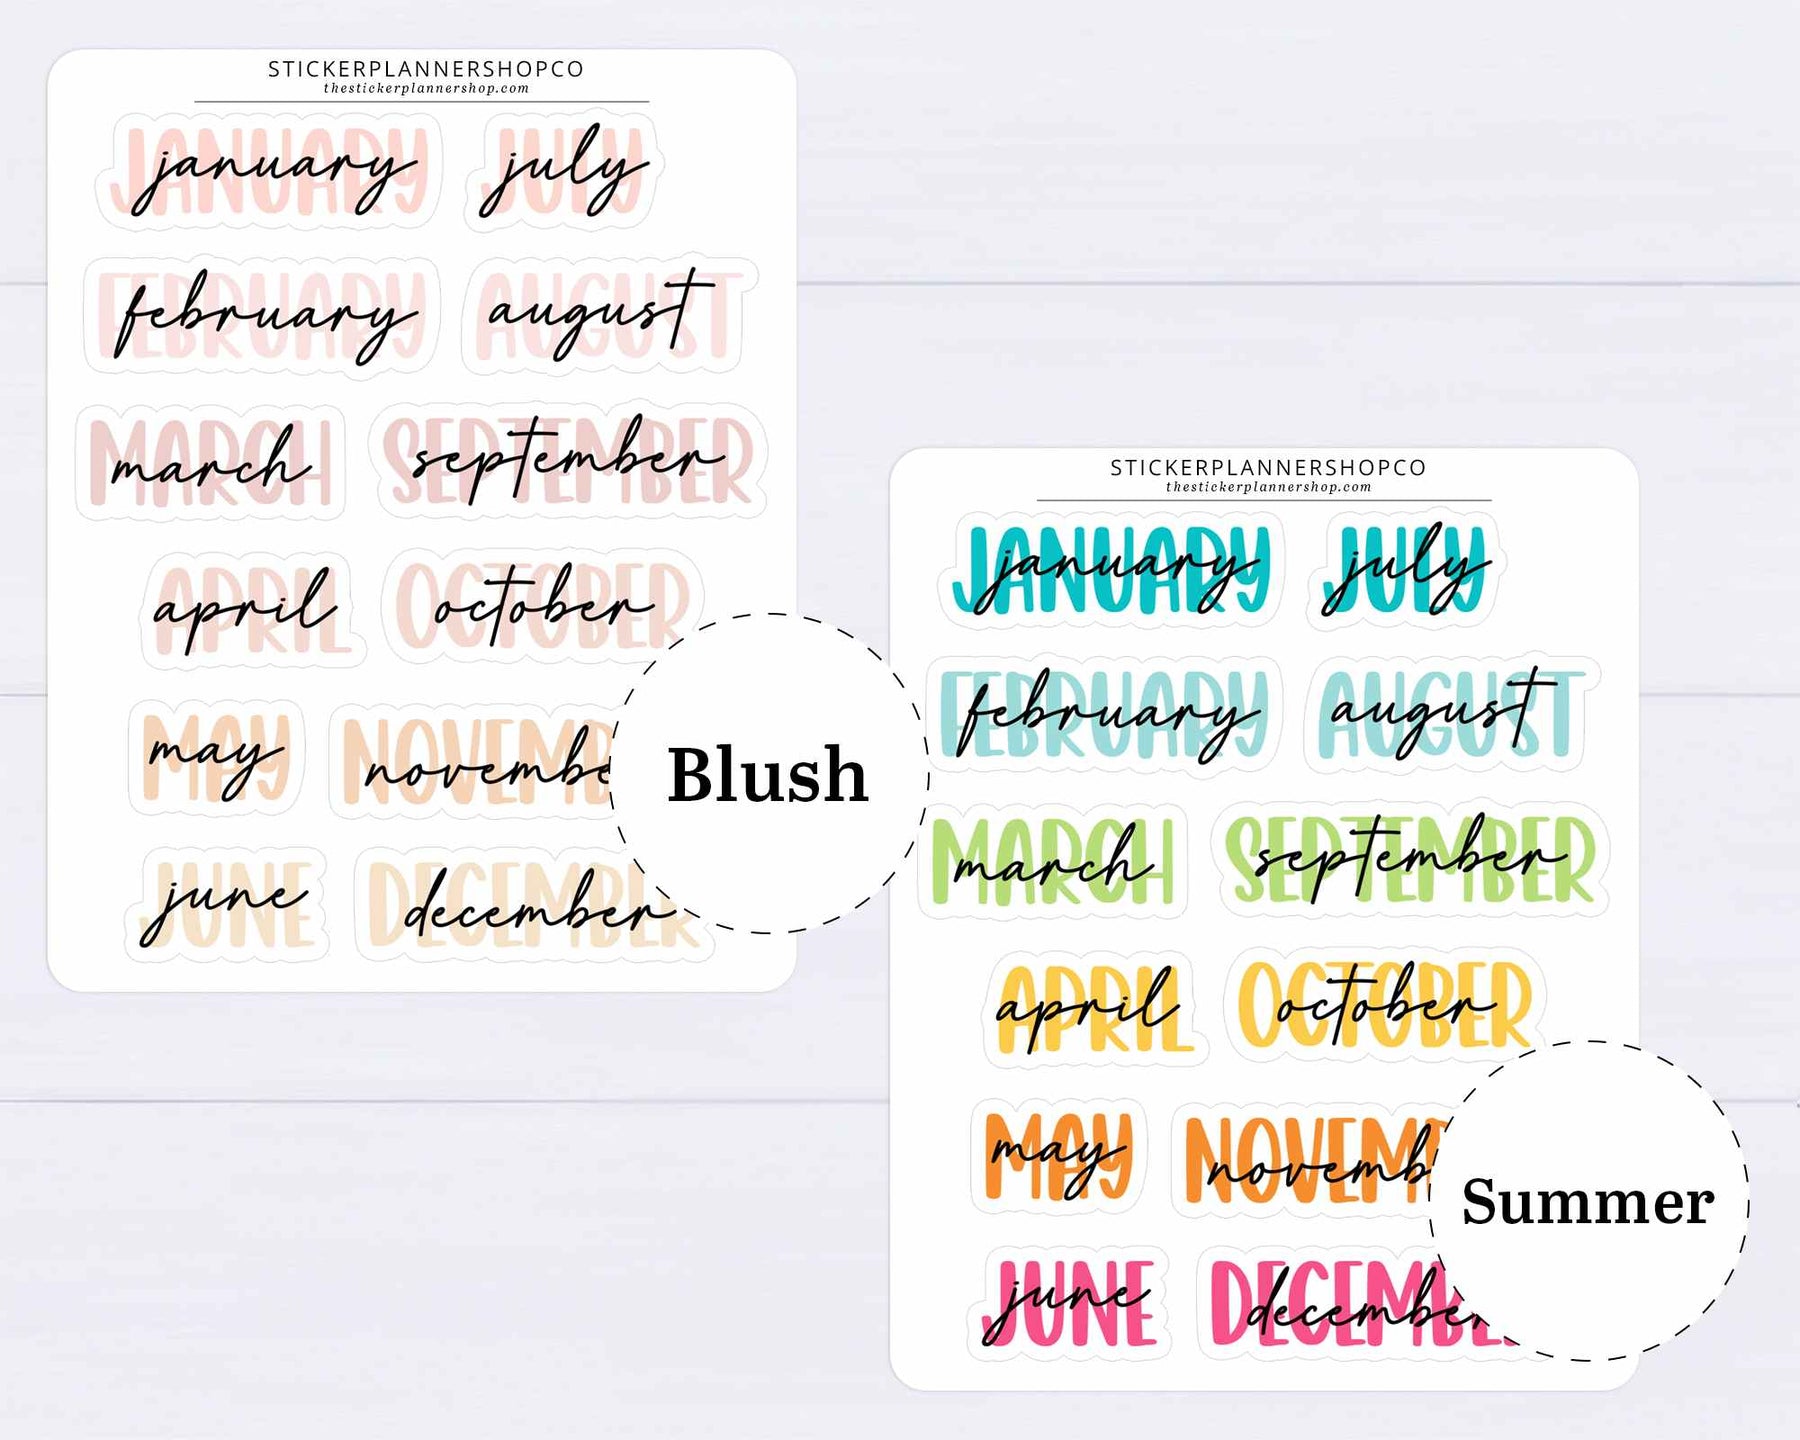 STICKERPLANNERSHOPCO
thestickerplannershop.com
JANUARY january
JULY july
FEBRUARY february
AUGUST august
MARCH march
SEPTEMBER september
APRIL april
OCTOBER october
MAY may
NOVEMB novembe
JUNE june
DECEMBER december
Blush
STICKERPLANNERSHOPCO
thestickerplannershop.com
JANUARY january
JULY july
FEBRUARY february
AUGUST august
MARCH march
SEPTEMBER september
APRIL april
OCTOBER october
MAY may
NOVEM novemb
JUNE june
DECEMBE december
Summer